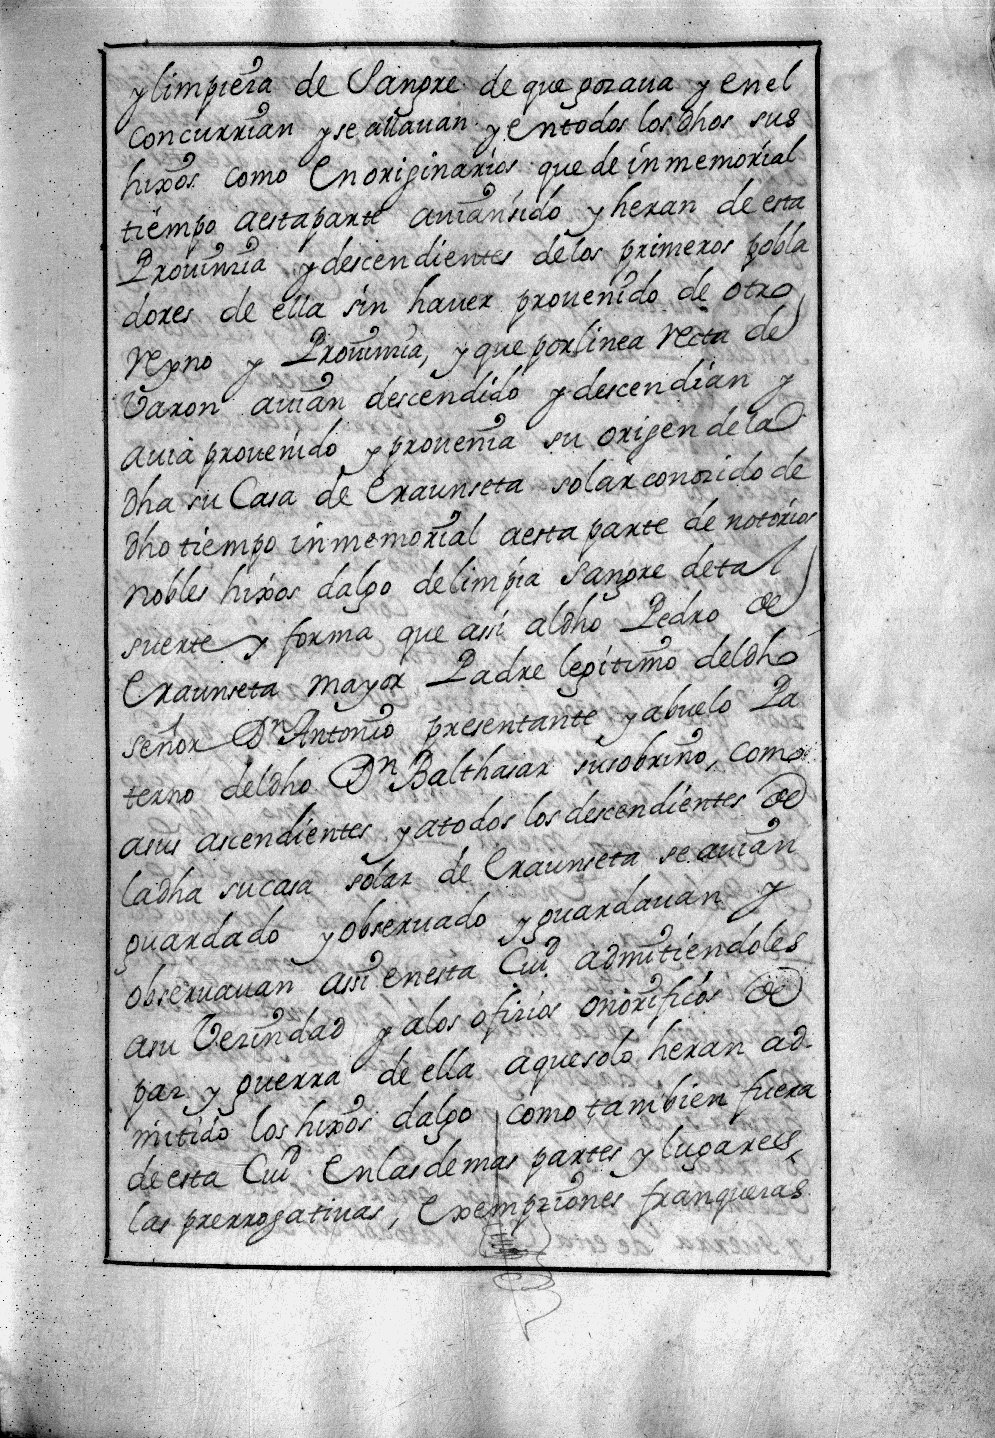 y limpieza de Sangre de que gozaua y en el
concurrian y se allauan y en todos los dhos sus
hixos como en originarios que de inmemorial
tiempo a esta parte auian sido y heran de esta
Prouinzia y descendientes de los primeros pobla
dores de ella sin hauer prouenido de otro
Reyno y Prouinzia, y que por linea Recta de
Varon auian descendido y descendian y
auia prouenido y prouenia su origen de la
dha su Casa de Eraunseta solar conozido de
dho tiempo inmemorial a esta parte de notorios
nobles hixos dalgo de limpia Sangre de tal
suerte y forma que assi al dho Pedro de
Eraunseta mayor Padre legitimo del dho
señor Dn Antonio presentante y abuelo Pa
terno del dho Dn Balthasar su sobrino, como
a sus ascendientes y a todos los descendientes de
la dha su casa solar de Eraunseta se auian
guardado y obseruado y guardauan y
obseruauan assi en esta Ciud admitiendoles
a su Vezindad y a los ofizios onorificos de
paz y guerra de ella a que solo heran ad-
mitido los hixos dalgo como tambien fuera
de esta Ciud En las demas partes y lugares,
las prerrogatiuas, Exempziones franquezas